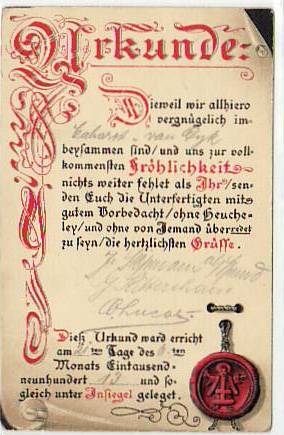 Urkunde:
Dieweil wir allhiero
vergnügelich im-
van Dyk
beysammen sind/ und uns zur voll-
kommensten Fröhlichkeit
nichts weiter fehlet als Ihr"/sen-
den Euch die Unterfertigten mit
gutem Vorbedacht/ohne Heuche-
ley/und ohne von Jemand überredet
zu seyn/die hertzlichsten Grüsse.
Dieß Urkund ward erricht
am ten Tage des 6ten
Monats Eintausend-
neunhundert 13 und so-
gleich unter Insiegel geleget.